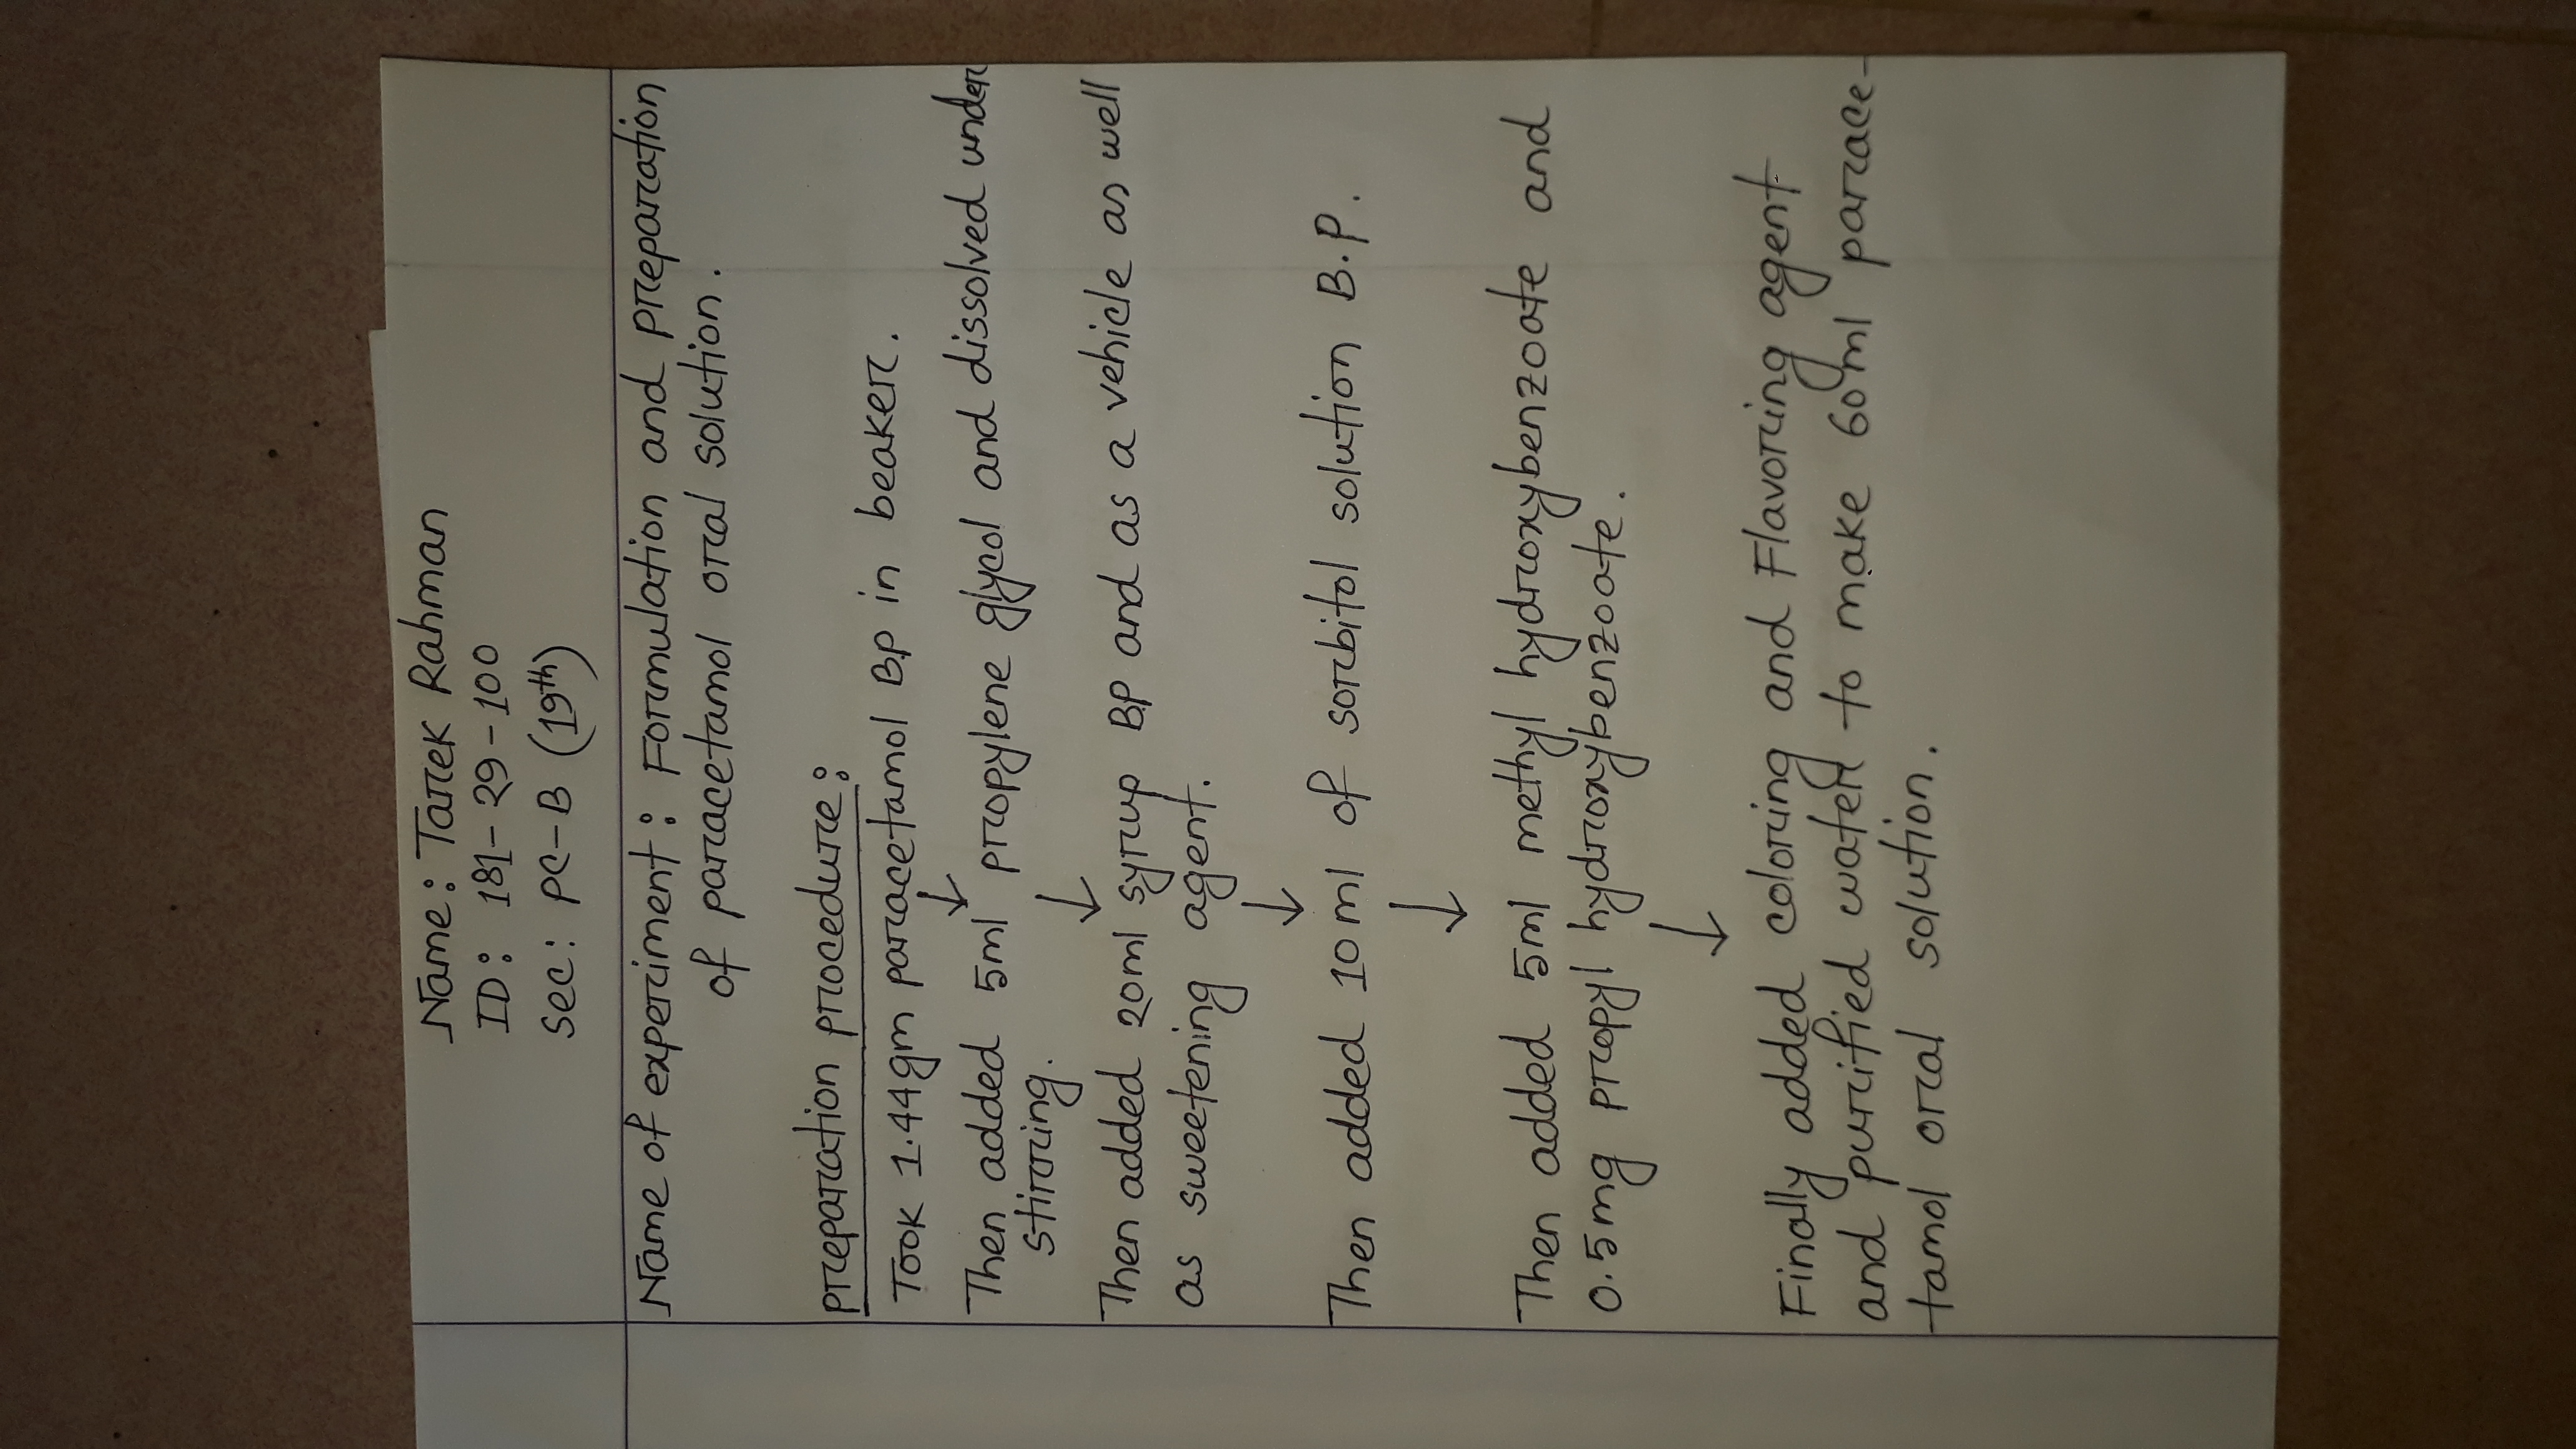 Name: Tarek Rahman
ID: 181-29-100
Sec: PC-B (19th)
Name of experiment: Formulation and preparation
of paracetamol oral solution.
preparation procedure:
Took 1.44gm paracetamol BP in beaker.
↓
Then added 5ml propylene glycol and dissolved under
stirring.
↓
Then added 20ml syrup BP and as a vehicle as well
as sweetening agent.
↓
Then added 10ml of sorbitol solution B.P.
↓
Then added 5ml methyl hydroxybenzoate and
0.5mg propyl hydroxybenzoate.
↓
Finally added coloring and Flavoring agent
and purified water to make 60ml parace-
tamol oral solution.